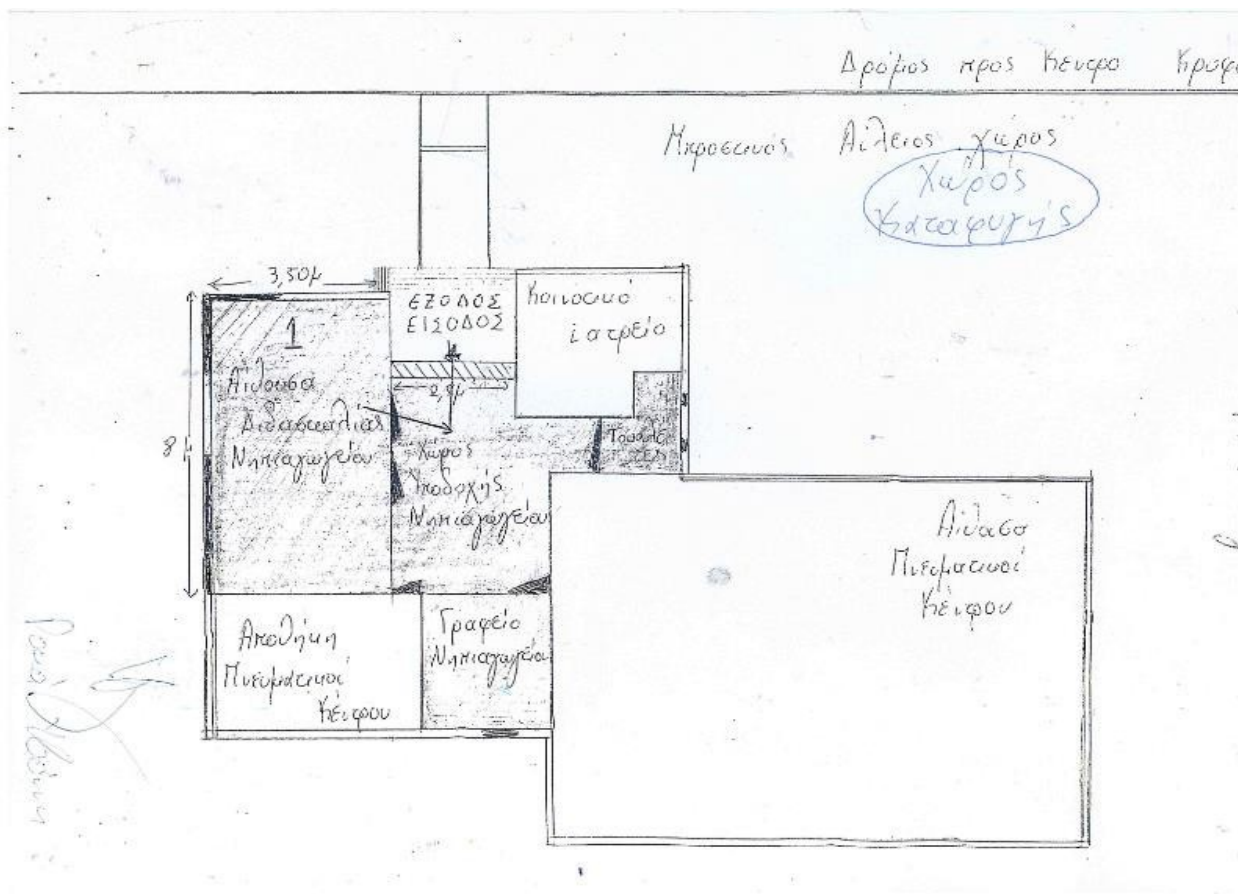 Δρόμος προς Κέντρο
Μπροστινός Αΰλειος χώρος
Χώρος
Καταφυγής
3,50μ
ΕΞΟΔΟΣ
ΕΙΣΟΔΟΣ
Κοινοτικό
ιατρείο
1
Αίθουσα
Διδασκαλίας
Νηπιαγωγείου
8μ
Χώρος
Υποδοχής
Νηπιαγωγείου
Αίθουσα
Πνευματικού
Κέντρου
Αποθήκη
Πνευματικού
Κέντρου
Γραφείο
Νηπιαγωγείου